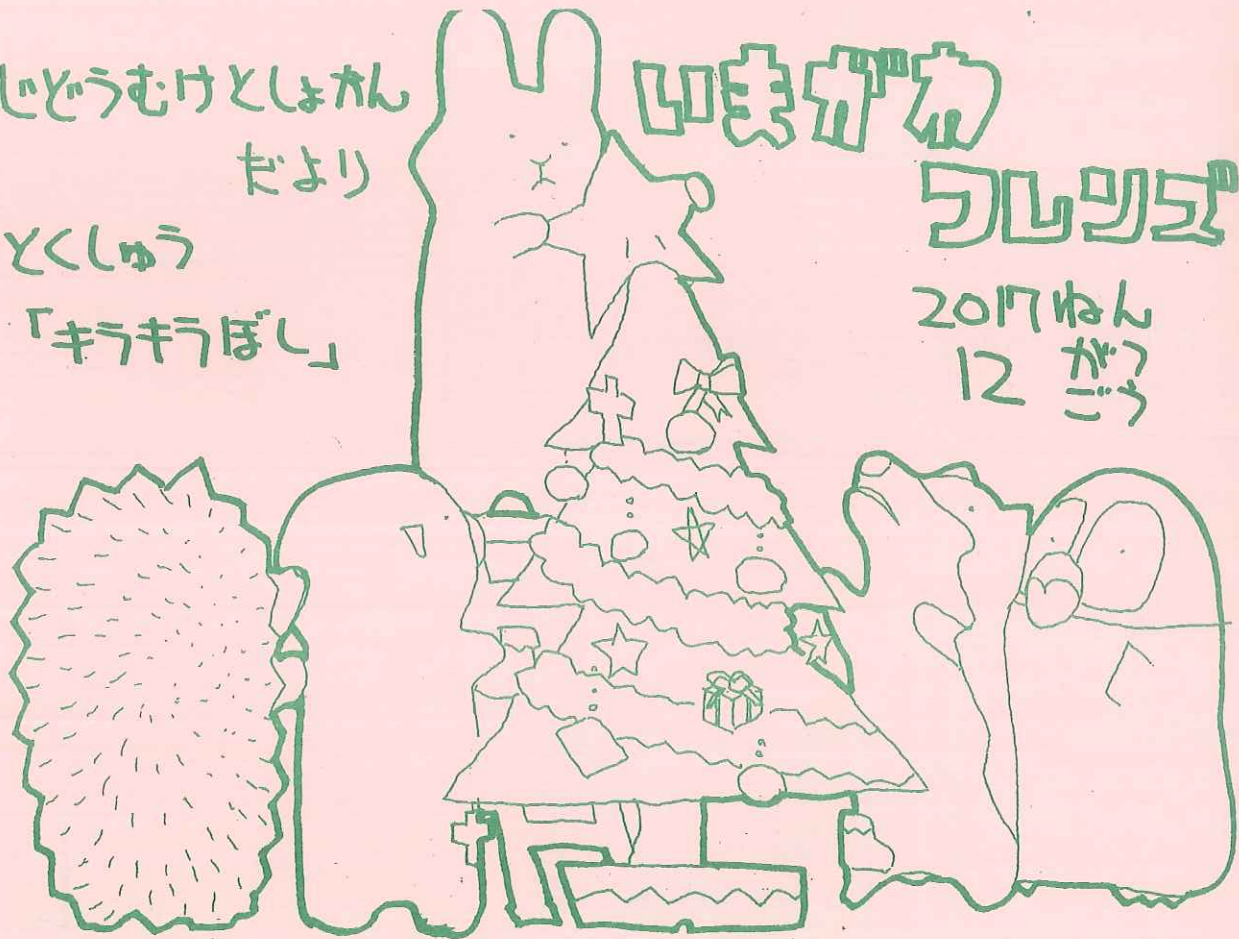 じどうむけとしょかん
だより
とくしゅう
「キラキラぼし」
いまがわ
フレンズ
2017ねん
12がつ
ごう